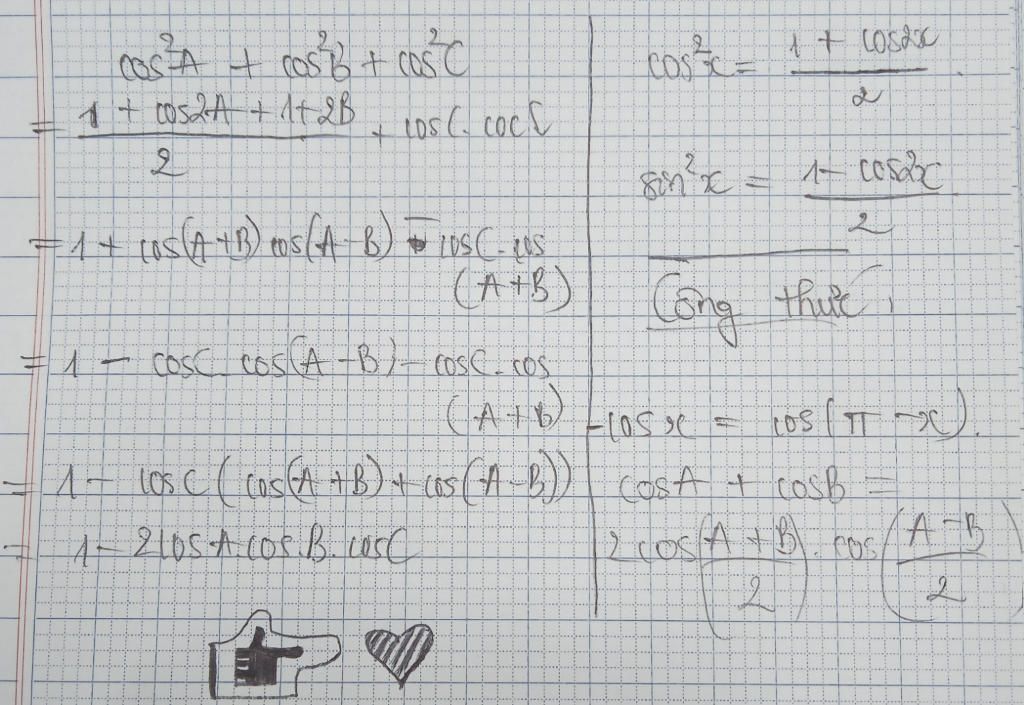 cos²A + cos²B + cos²C
= (1 + cos2A + 1 + 2B)/2 + cosC. cocC
= 1 + cos(A+B) cos(A-B) - cosC. cos
(A+B)
= 1 - cosC. cos(A-B) - cosC. cos
(A+B)
= 1 - cosC (cos(A+B) + cos(A-B))
= 1 - 2cosA.cos.B.cosC
cos²x = (1 + cos2x)/2.
sin²x = (1 - cos2x)/2
Công thức
-cosx = cos(π-x).
cosA + cosB =
2cos((A+B)/2). cos((A-B)/2)